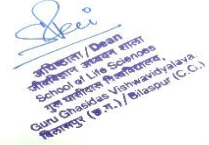 अधिष्ठाता / Dean
जीवविज्ञान अध्ययन शाला
School of Life Sciences
गुरु घासीदास विश्वविद्यालय,
Guru Ghasidas Vishwavidyalaya.
बिलासपुर (छ.ग.) / Bilaspur (C.G.)